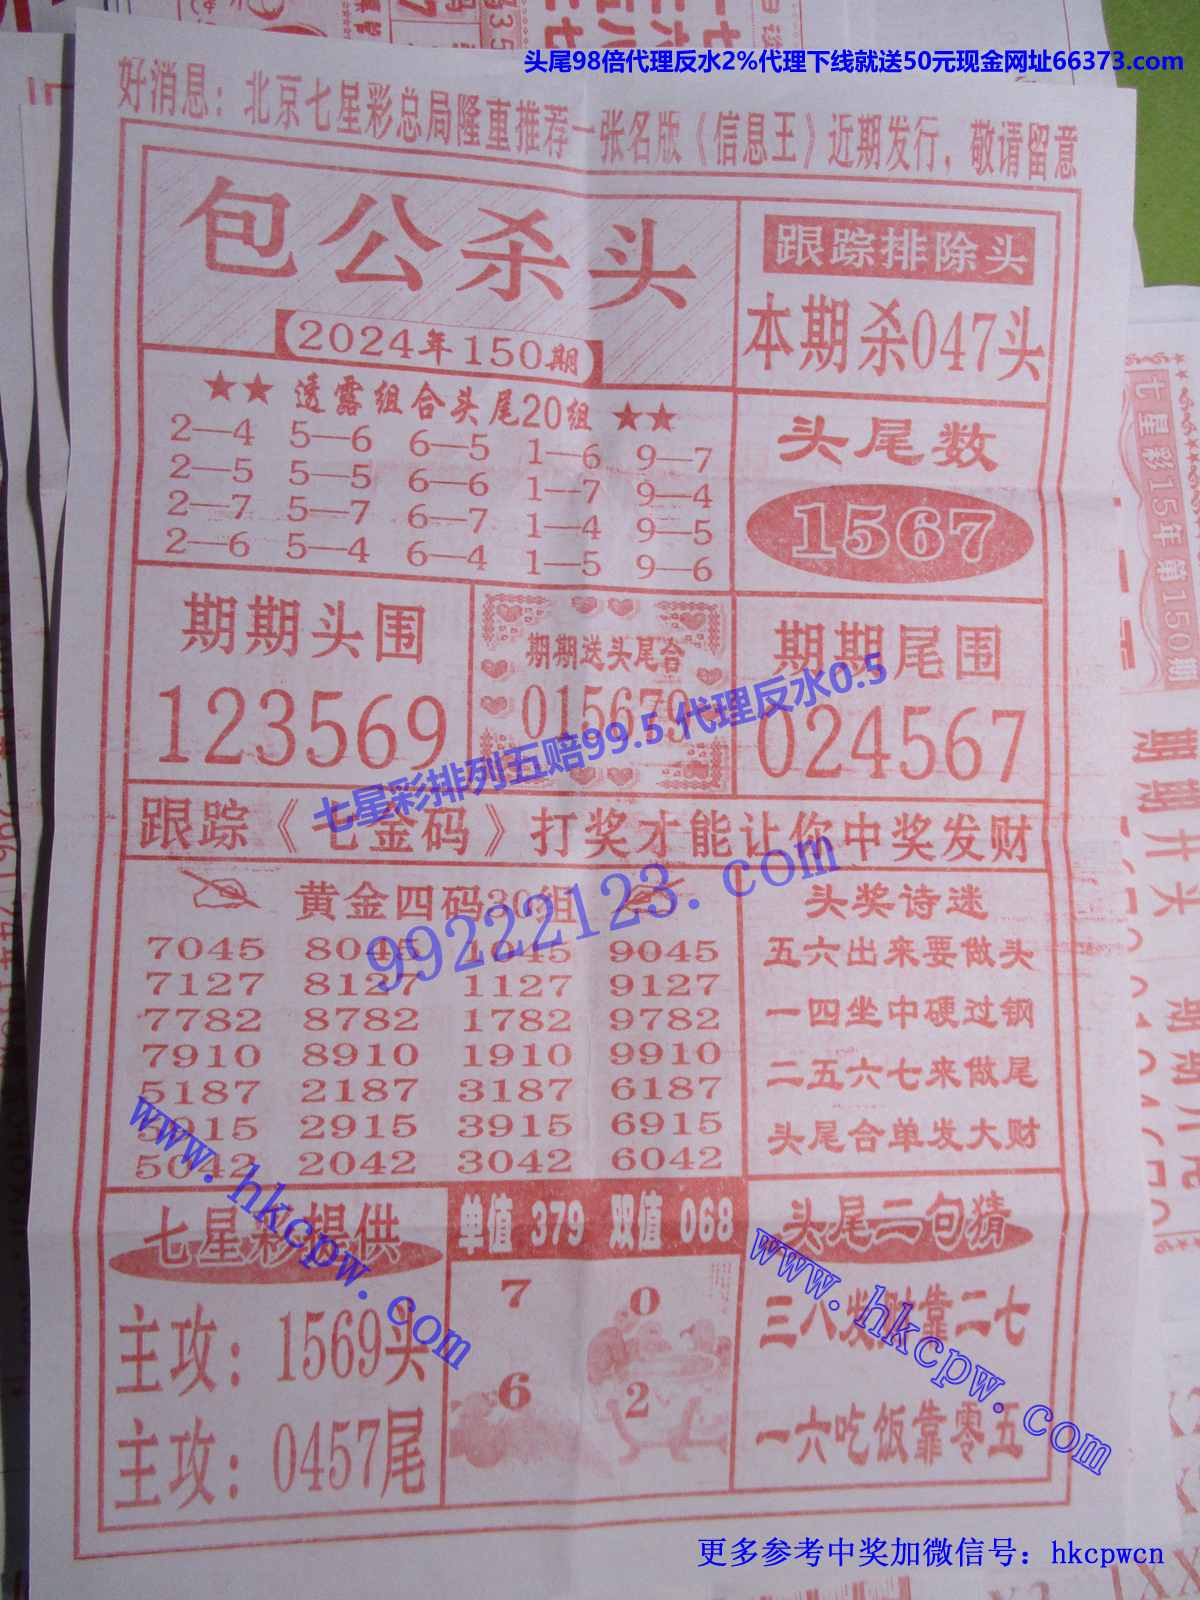 头尾98倍代理反水2%代理下线就送50元现金网址66373.com
好消息：北京七星彩总局隆重推荐一张名版《信息王》近期发行，敬请留意
包公杀头
2024年150期
跟踪排除头
本期杀047头
★★ 透露组合头尾20组 ★★
2—4 5—6 6—5 1—6 9—7
2—5 5—5 6—6 1—7 9—4
2—7 5—7 6—7 1—4 9—5
2—6 5—4 6—4 1—5 9—6
头尾数
1567
期期头围
123569
期期送头尾合
015679
期期尾围
024567
七星彩排列五赔99.5 代理反水0.5
跟踪《七金码》打奖才能让你中奖发财
99222123.com
黄金四码30组
7045 8045 1045 9045
7127 8127 1127 9127
7782 8782 1782 9782
7910 8910 1910 9910
5187 2187 3187 6187
5915 2915 3915 6915
5042 2042 3042 6042
头奖诗迷
五六出来要做头
一四坐中硬过钢
二五六七来做尾
头尾合单发大财
www.hkcpw.com
七星彩提供
主攻：1569头
主攻：0457尾
单值 379 双值 068
7 0
6 2
头尾二句猜
三八发财靠二七
一六吃饭靠零五
www.hkcpw.com
七星彩15年第150期
期期开头
期期开尾
更多参考中奖加微信号：hkcpwcn